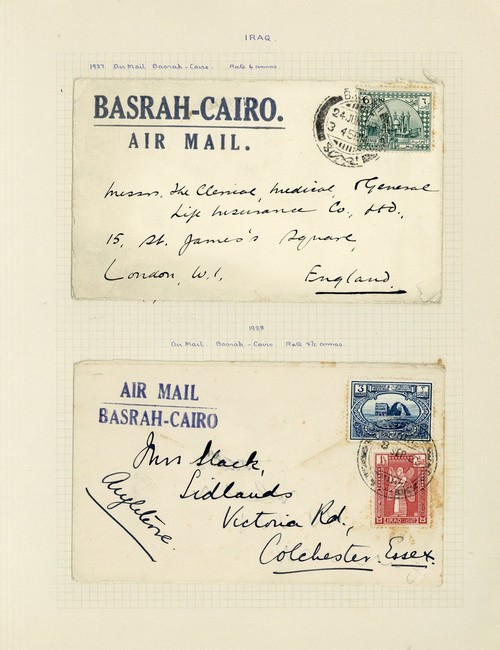 IRAQ.
1927. Air Mail Basrah-Cairo. Rate 6 annas.
BASRAH-CAIRO.
AIR MAIL.
24 JU
3 45P
6
Messrs. The Clerical, Medical, & General
Life Insurance Co., Ltd.,
15, St. James's Square,
London, W.1.
England.
Air Mail. Basrah - Cairo. Rate 4½ annas.
AIR MAIL
BASRAH-CAIRO
3
SEP
1½
IRAQ
Slack,
Sidlands
Victoria Rd.,
Colchester, Essex.
Angleterre.